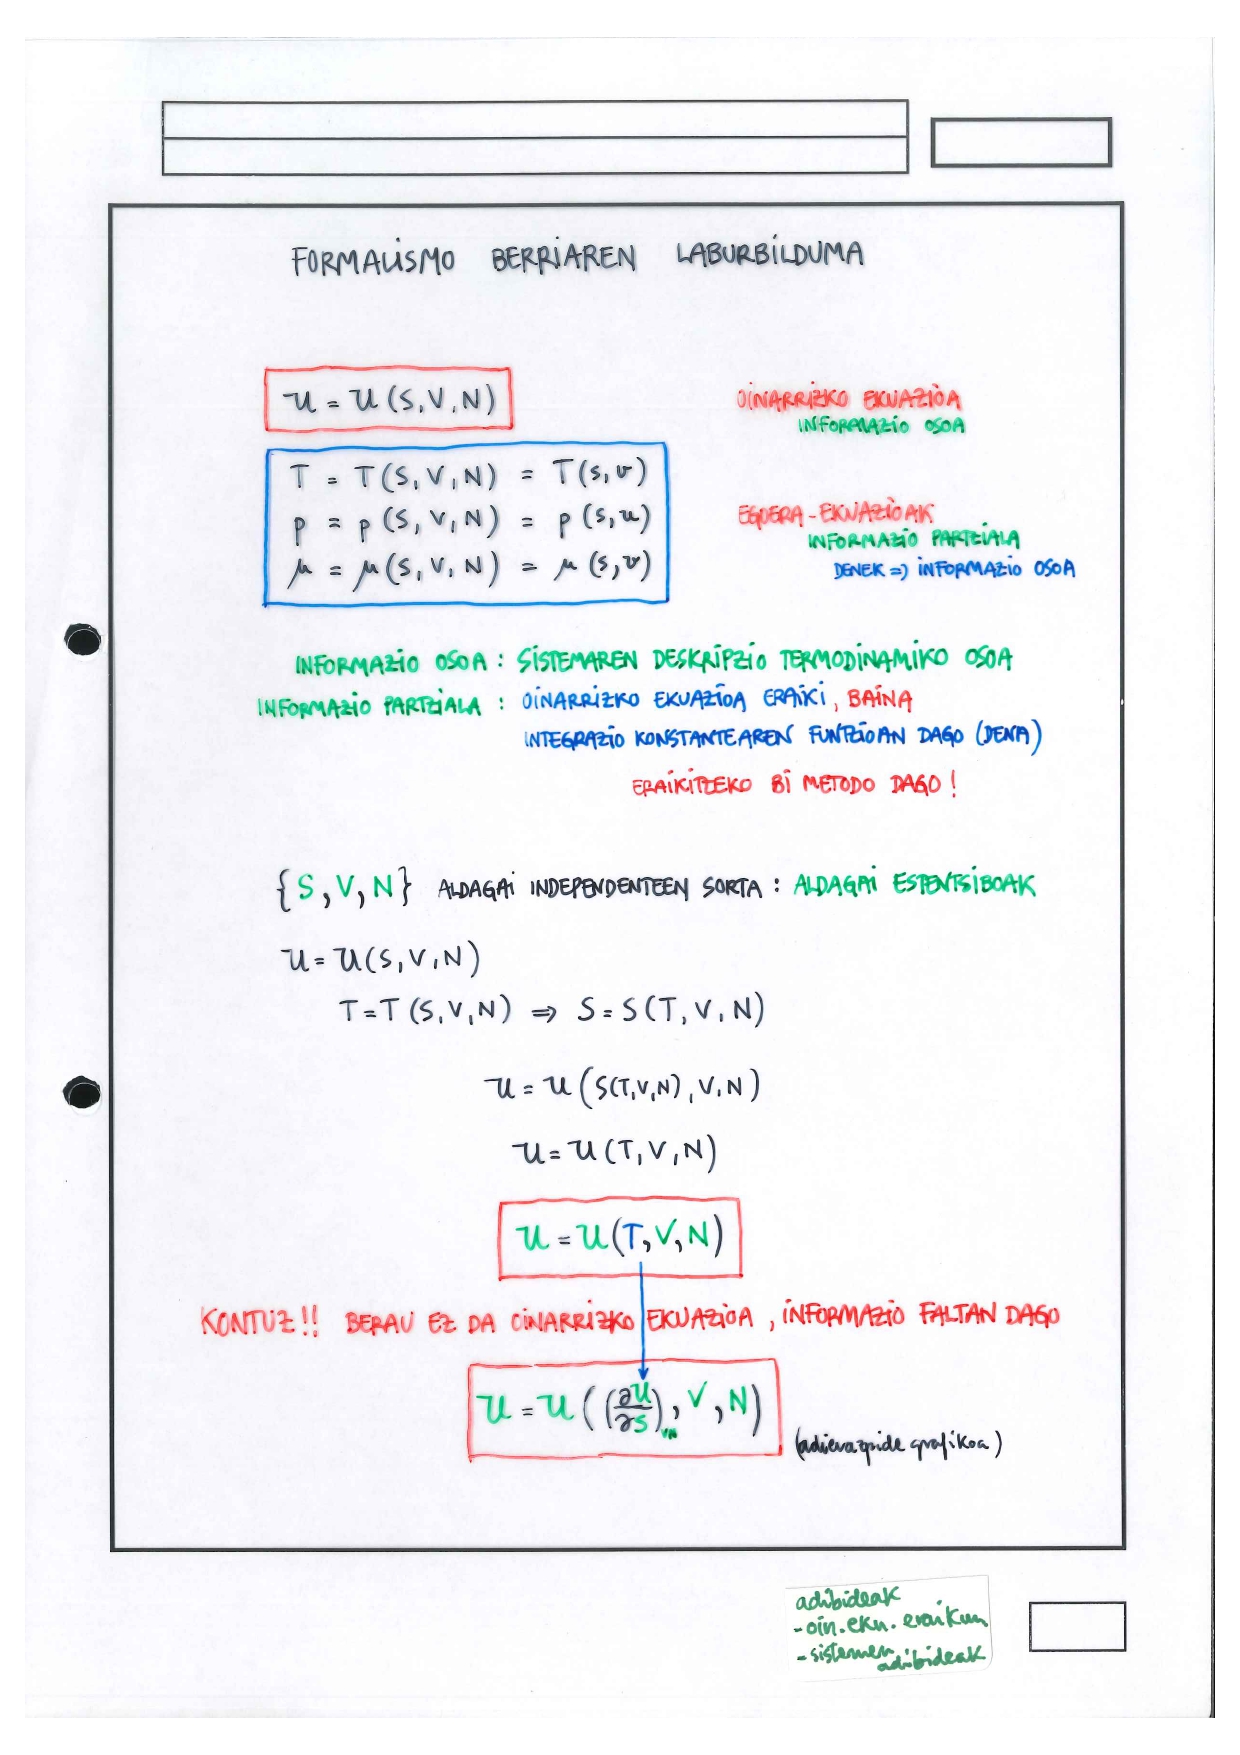 FORMALISMO BERRIAREN LABURBILDUMA
U = U(S,V,N)
OINARRIZKO EKUAZIOA
INFORMAZIO OSOA
T = T(S,V,N) = T(s,v)
p = p(S,V,N) = p(s,u)
μ = μ(S,V,N) = μ(s,v)
EGOERA-EKUAZIOAK
INFORMAZIO PARTZIALA
DENEK => INFORMAZIO OSOA
INFORMAZIO OSOA : SISTEMAREN DESKRIPZIO TERMODINAMIKO OSOA
INFORMAZIO PARTZIALA : OINARRIZKO EKUAZIOA ERAIKI, BAINA
INTEGRAZIO KONSTANTEAREN FUNTZIOAN DAGO (DENA)
ERAIKITZEKO BI METODO DAGO!
{S,V,N} ALDAGAI INDEPENDENTEEN SORTA : ALDAGAI ESTENTSIBOAK
U = U(S,V,N)
T = T(S,V,N) ⇒ S = S(T,V,N)
U = U(S(T,V,N),V,N)
U = U(T,V,N)
U = U(T,V,N)
KONTUZ!! BERAU EZ DA OINARRIZKO EKUAZIOA, INFORMAZIO FALTAN DAGO
U = U((∂U/∂S)VN, V, N)
(adierazpide grafikoa)
adibideak
- oin. eku. eraikun
- sistemen
adibideak